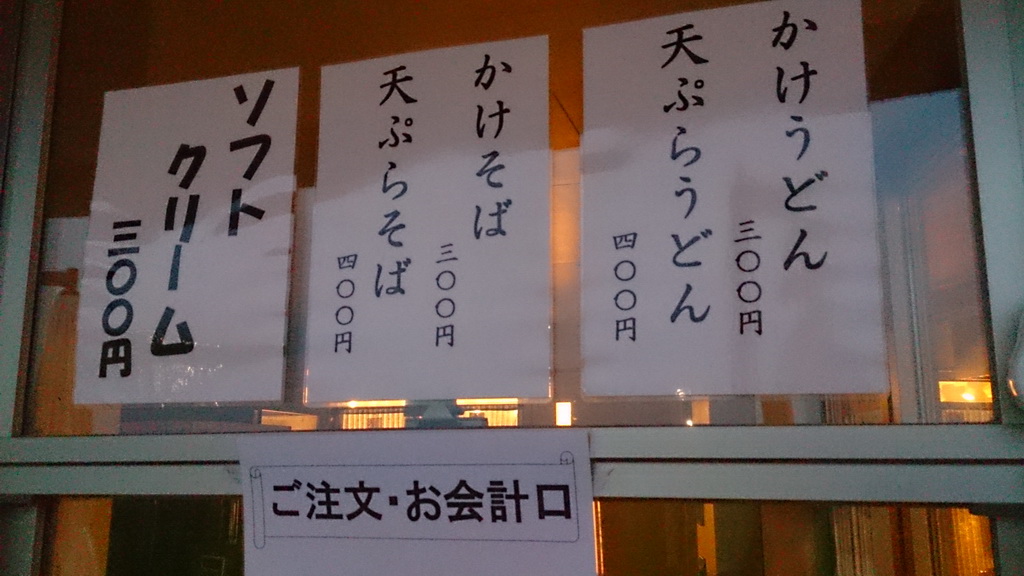 かけうどん
三〇〇円
天ぷらうどん
四〇〇円
かけそば
三〇〇円
天ぷらそば
四〇〇円
ソフト
クリーム
三〇〇円
ご注文・お会計口